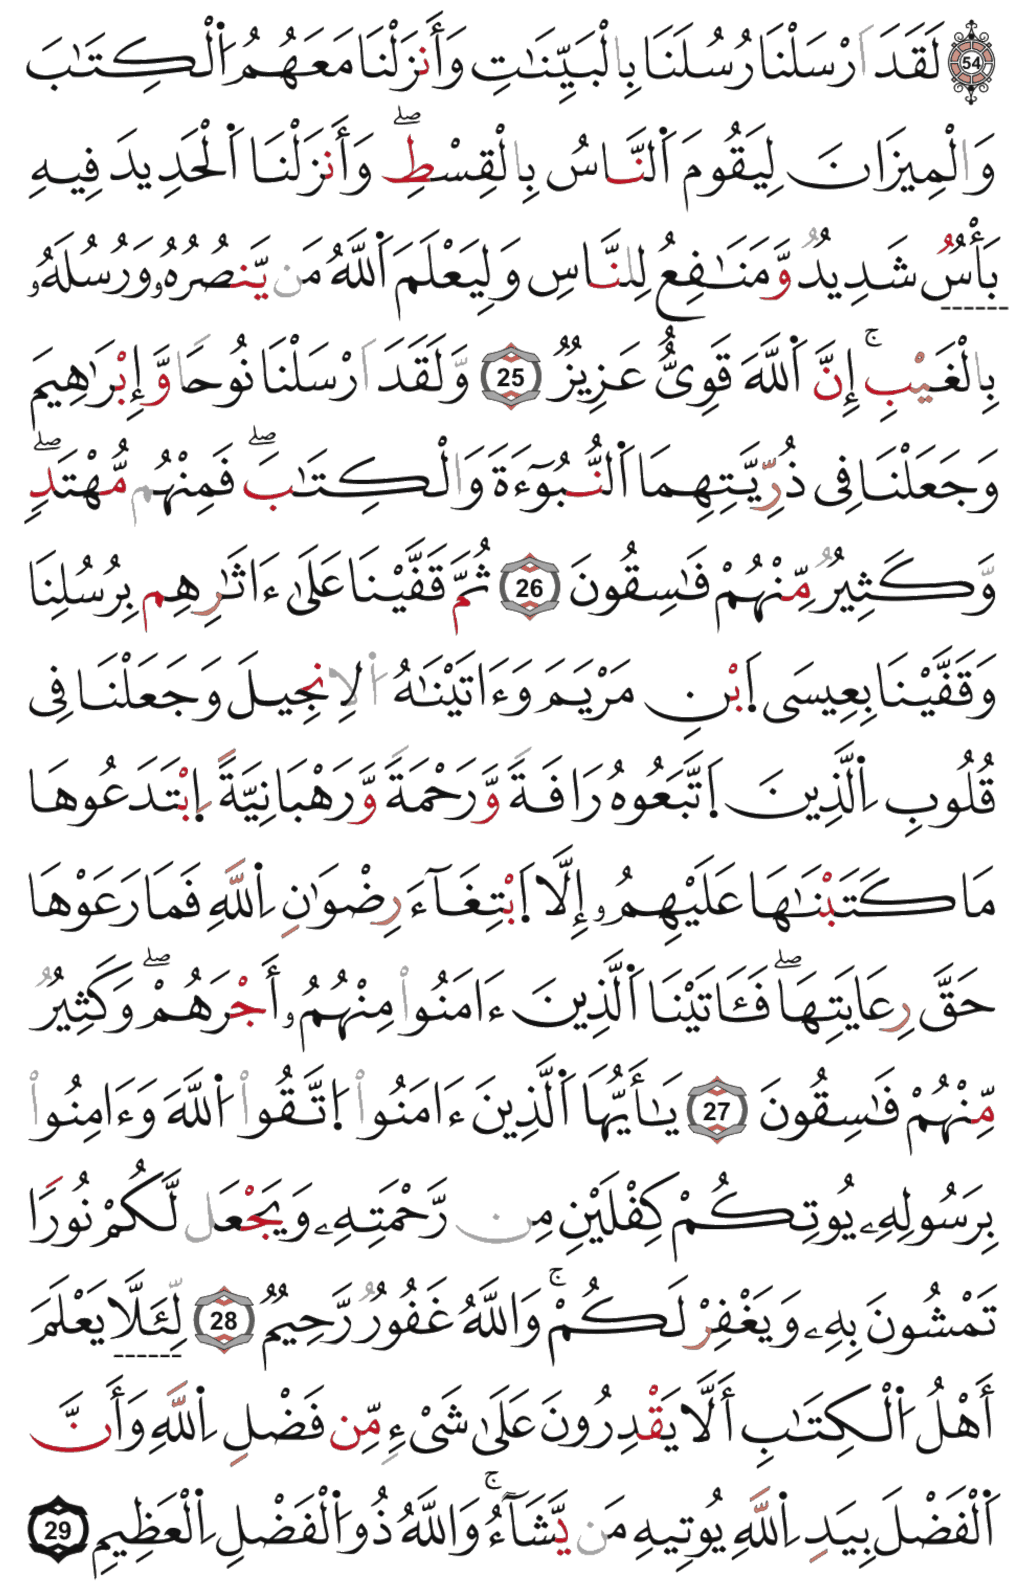 54 لَقَدَ اَرْسَلْنَا رُسُلَنَا بِالْبَيِّنَٰتِ وَأَنزَلْنَا مَعَهُمُ اُ۬لْكِتَٰبَ
وَالْمِيزَانَ لِيَقُومَ اَ۬لنَّاسُ بِالْقِسْطِۖ وَأَنزَلْنَا اَ۬لْحَدِيدَ فِيهِ
بَأْسٞ شَدِيدٞ وَّمَنَٰفِعُ لِلنَّاسِ وَلِيَعْلَمَ اَ۬للَّهُ مَنْ يَّنصُرُهُۥ وَرُسُلَهُۥ
بِالْغَيْبِۚ إِنَّ اَ۬للَّهَ قَوِيٌّ عَزِيزٞ 25 وَّلَقَدَ اَرْسَلْنَا نُوحاٗ وَّإِبْرَٰهِيمَ
وَجَعَلْنَا فِى ذُرِّيَّتِهِمَا اَ۬لنُّبُوٓءَةَ وَالْكِتَٰبَۖ فَمِنْهُم مُّهْتَدٖۖ
وَّكَثِيرٞ مِّنْهُمْ فَٰسِقُونَ 26 ثُمَّ قَفَّيْنَا عَلَىٰ ءَاثَٰرِهِم بِرُسُلِنَا
وَقَفَّيْنَا بِعِيسَى اَ۪بْنِ مَرْيَمَ وَءَاتَيْنَٰهُ اُ۬لِانجِيلَ وَجَعَلْنَا فِى
قُلُوبِ اِ۬لَّذِينَ اَ۪تَّبَعُوهُ رَافَةٗ وَّرَحْمَةٗ وَّرَهْبَانِيَّةً اِ۪بْتَدَعُوهَا
مَا كَتَبْنَٰهَا عَلَيْهِمُۥ إِلَّا اَ۪بْتِغَآءَ رِضْوَٰنِ اِ۬للَّهِ فَمَا رَعَوْهَا
حَقَّ رِعَايَتِهَاۖ فَـَٔاتَيْنَا اَ۬لذِينَ ءَامَنُواْ مِنْهُمُۥ أَجْرَهُمْۖ وَكَثِيرٞ
مِّنْهُمْ فَٰسِقُونَ 27 يَٰأَيُّهَا اَ۬لَّذِينَ ءَامَنُواْ اُ۪تَّقُواْ اُ۬للَّهَ وَءَامِنُواْ
بِرَسُولِهِۦ يُوتِكُمْ كِفْلَيْنِ مِن رَّحْمَتِهِۦ وَيَجْعَل لَّكُمْ نُوراٗ
تَمْشُونَ بِهِۦ وَيَغْفِرْ لَكُمْۚ وَاللَّهُ غَفُورٞ رَّحِيمٞ 28 لِّئَلَّا يَعْلَمَ
أَهْلُ اُ۬لْكِتَٰبِ أَلَّا يَقْدِرُونَ عَلَىٰ شَىْءٖ مِّن فَضْلِ اِ۬للَّهِ وَأَنَّ
اَ۬لْفَضْلَ بِيَدِ اِ۬للَّهِ يُوتِيهِ مَنْ يَّشَآءُۚ وَاللَّهُ ذُو اُ۬لْفَضْلِ اِ۬لْعَظِيمِ 29